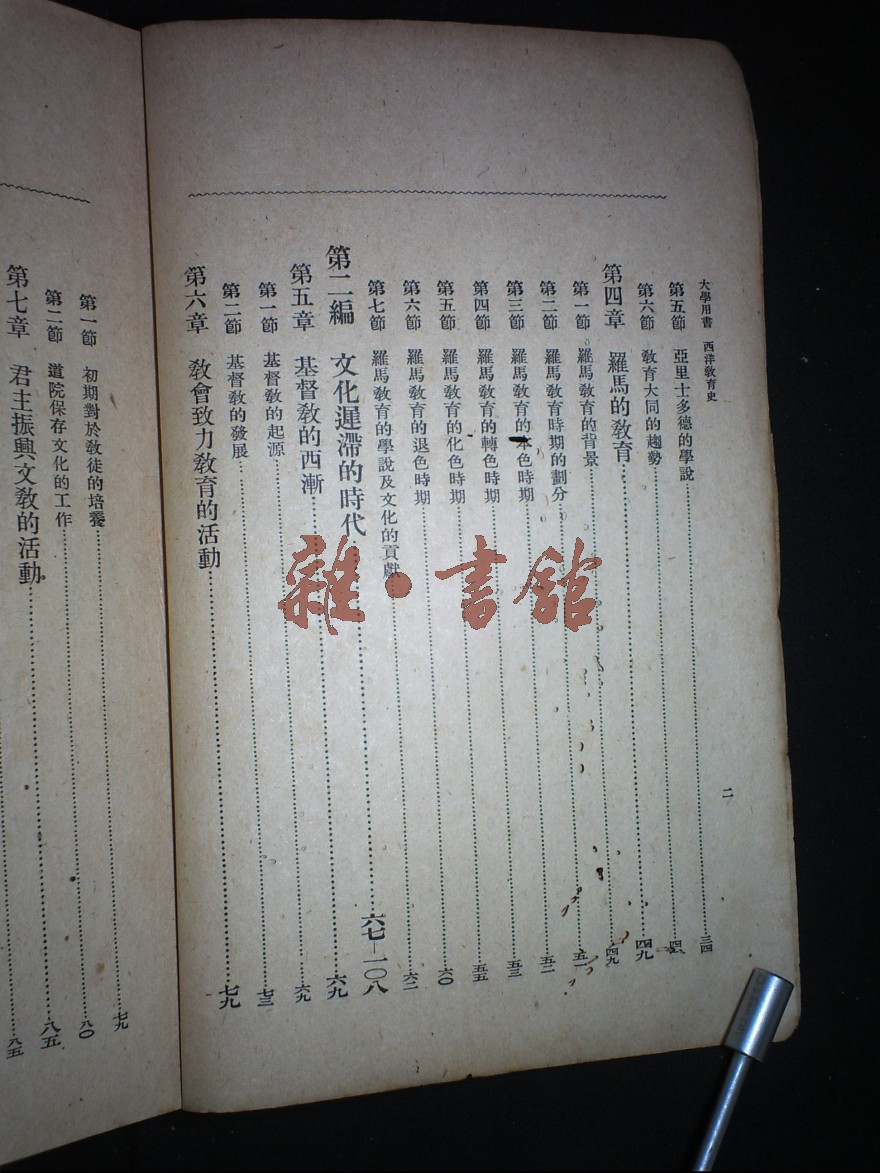 大學用書 西洋教育史 二
第五節 亞里士多德的學說……三四
第六節 教育大同的趨勢……
第四章 羅馬的教育……四九
第一節 羅馬教育的背景……四九
第二節 羅馬教育時期的劃分……五一
第三節 羅馬教育的本色時期……五二
第四節 羅馬教育的轉色時期……五三
第五節 羅馬教育的化色時期……五五
第六節 羅馬教育的退色時期……六〇
第七節 羅馬教育的學說及文化的貢獻……六二
第二編 文化遲滯的時代……六七—一〇八
第五章 基督教的西漸……六九
第一節 基督教的起源……六九
第二節 基督教的發展……七三
第六章 教會致力教育的活動……七九
第一節 初期對於教徒的培養……七九
第二節 道院保存文化的工作……八〇
第七章 君主振興文教的活動……八五
八五
雜·書館